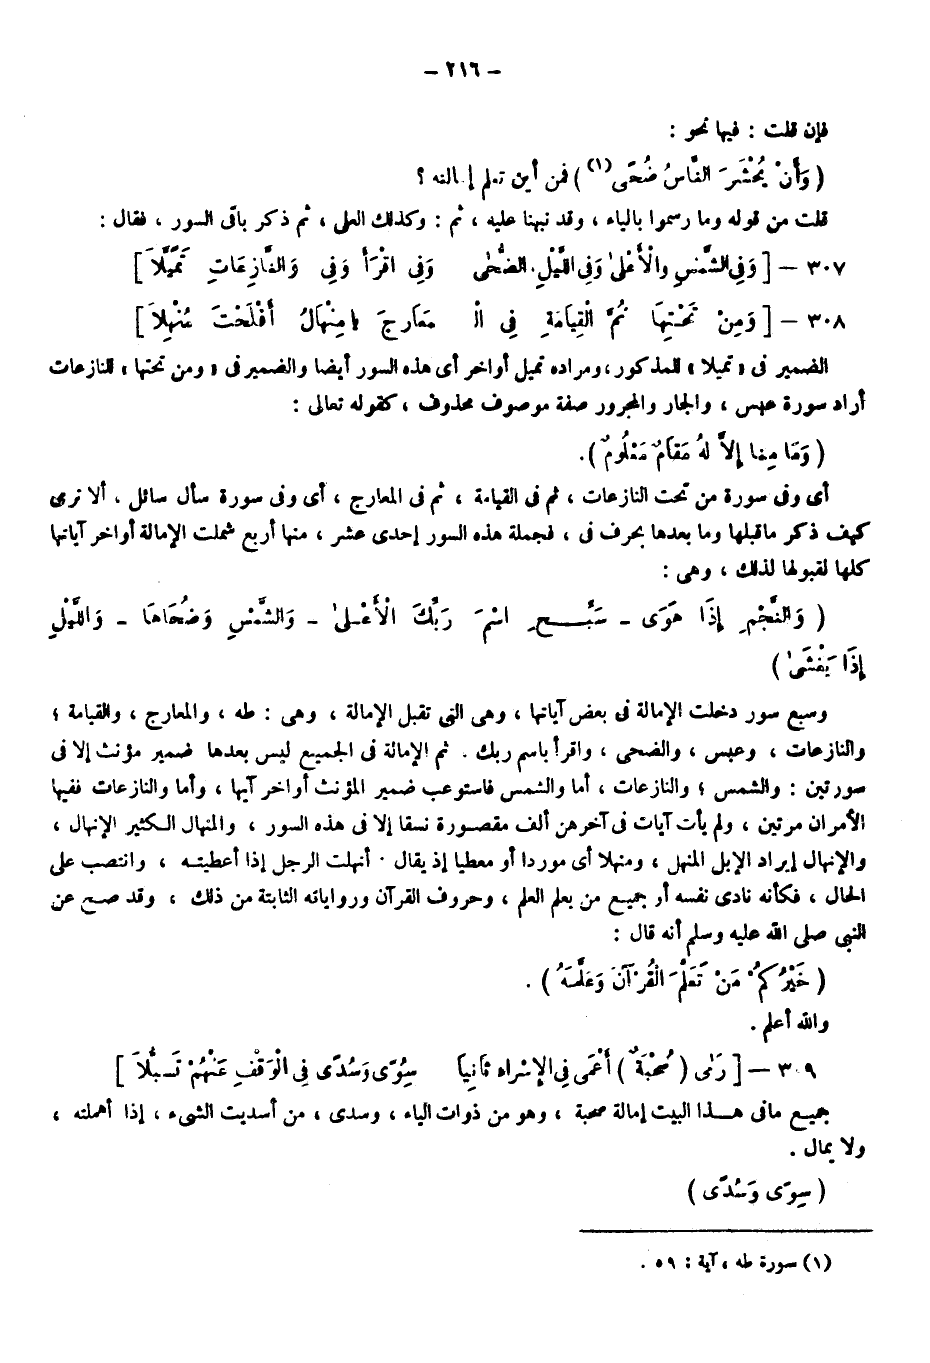 – ٢١٦ –
فإن قلت : فيها نحو :
( وَأَنْ يُحْشَرَ النَّاسُ ضُحًى (١) ) فمن أين تعلم إمالته ؟
قلت من قوله وما رسموا بالياء ، وقد نبهنا عليه ، ثم : وكذلك العلى ، ثم ذكر باقى السور ، فقال :
٣٠٧ – [ وَفِى الشَّمْسِ وَالْأَعْلَىٰ وَفِى اللَّيْلِ وَالضُّحٰى وَفِى اقْرَأْ وَفِى وَالنَّازِعَاتِ تَمَيَّلَا ]
٣٠٨ – [ وَمِنْ تَحْتِهَا ثُمَّ الْقِيَامَةِ فِى الْ مَعَارِجَ يَا مِنْهَالُ أَفْلَحْتَ مُنْهِلَا ]
الضمير فى « تميلا » للمذكور ، ومراده تميل أواخر أى هذه السور أيضا والضمير فى « ومن تحتها » للنازعات
أراد سورة عبس ، والجار والمجرور صفة موصوف محذوف ، كقوله تعالى :
( وَمَا مِنا إِلاَّ لهُ مَقاَمٌ مَعْلُومٌ ) .
أى وفى سورة من تحت النازعات ، ثم فى القيامة ، ثم فى المعارج ، أى وفى سورة سأل سائل . ألا ترى
كيف ذكر ماقبلها وما بعدها بحرف فى ، فجملة هذه السور إحدى عشر ، منها أربع شملت الإمالة أواخر آياتها
كلها لقبولها لذلك ، وهى :
( وَالنَّجْمِ إِذَا هَوَى – سَبِّحِ اسْمَ رَبِّكَ الْأَعْلىٰ – وَالشَّمْسِ وَضُحَاهَا – وَاللَّيْلِ
إِذَا يَغْشَىٰ )
وسبع سور دخلت الإمالة فى بعض آياتها ، وهى التى تقبل الإمالة ، وهى : طه ، والمعارج ، والقيامة ؛
والنازعات ، وعبس ، والضحى ، واقرأ باسم ربك . ثم الإمالة فى الجميع ليس بعدها ضمير مؤنث إلا فى
سورتين : والشمس ؛ والنازعات ، أما والشمس فاستوعب ضمير المؤنث أواخر آيها ، وأما والنازعات ففيها
الأمران مرتين ، ولم يأت آيات فى آخرهن ألف مقصورة نسقا إلا فى هذه السور ، والمنهال الكثير الإنهال ،
والإنهال إيراد الإبل المنهل ، ومنهلا أى موردا أو معطيا إذ يقال . أنهلت الرجل إذا أعطيته ، وانتصب على
الحال ، فكأنه نادى نفسه أو جميع من يعلم العلم ، وحروف القرآن ورواياته الثابتة من ذلك ، وقد صح عن
النبى صلى الله عليه وسلم أنه قال :
( خَيْرُكُمْ مَنْ تَعَلَّمَ الْقُرْآنَ وَعَلَّمَهُ ) .
والله أعلم .
٣٠٩ – [ رَمٰى ( صُحْبَةٌ ) أَعْمَى فِى الإِسْرَاءِ ثَانِياً سِوًى وَسُدًى فِى الْوَقْفِ عَنْهُمْ تَسَبُّلاَ ]
جميع مافى هذا البيت إمالة صحبة ، وهو من ذوات الياء ، وسدى ، من أسديت الشىء ، إذا أهملته ،
ولا يمال .
( سِوًى وَسُدًى )
(١) سورة طه ، آية : ٥٩ .